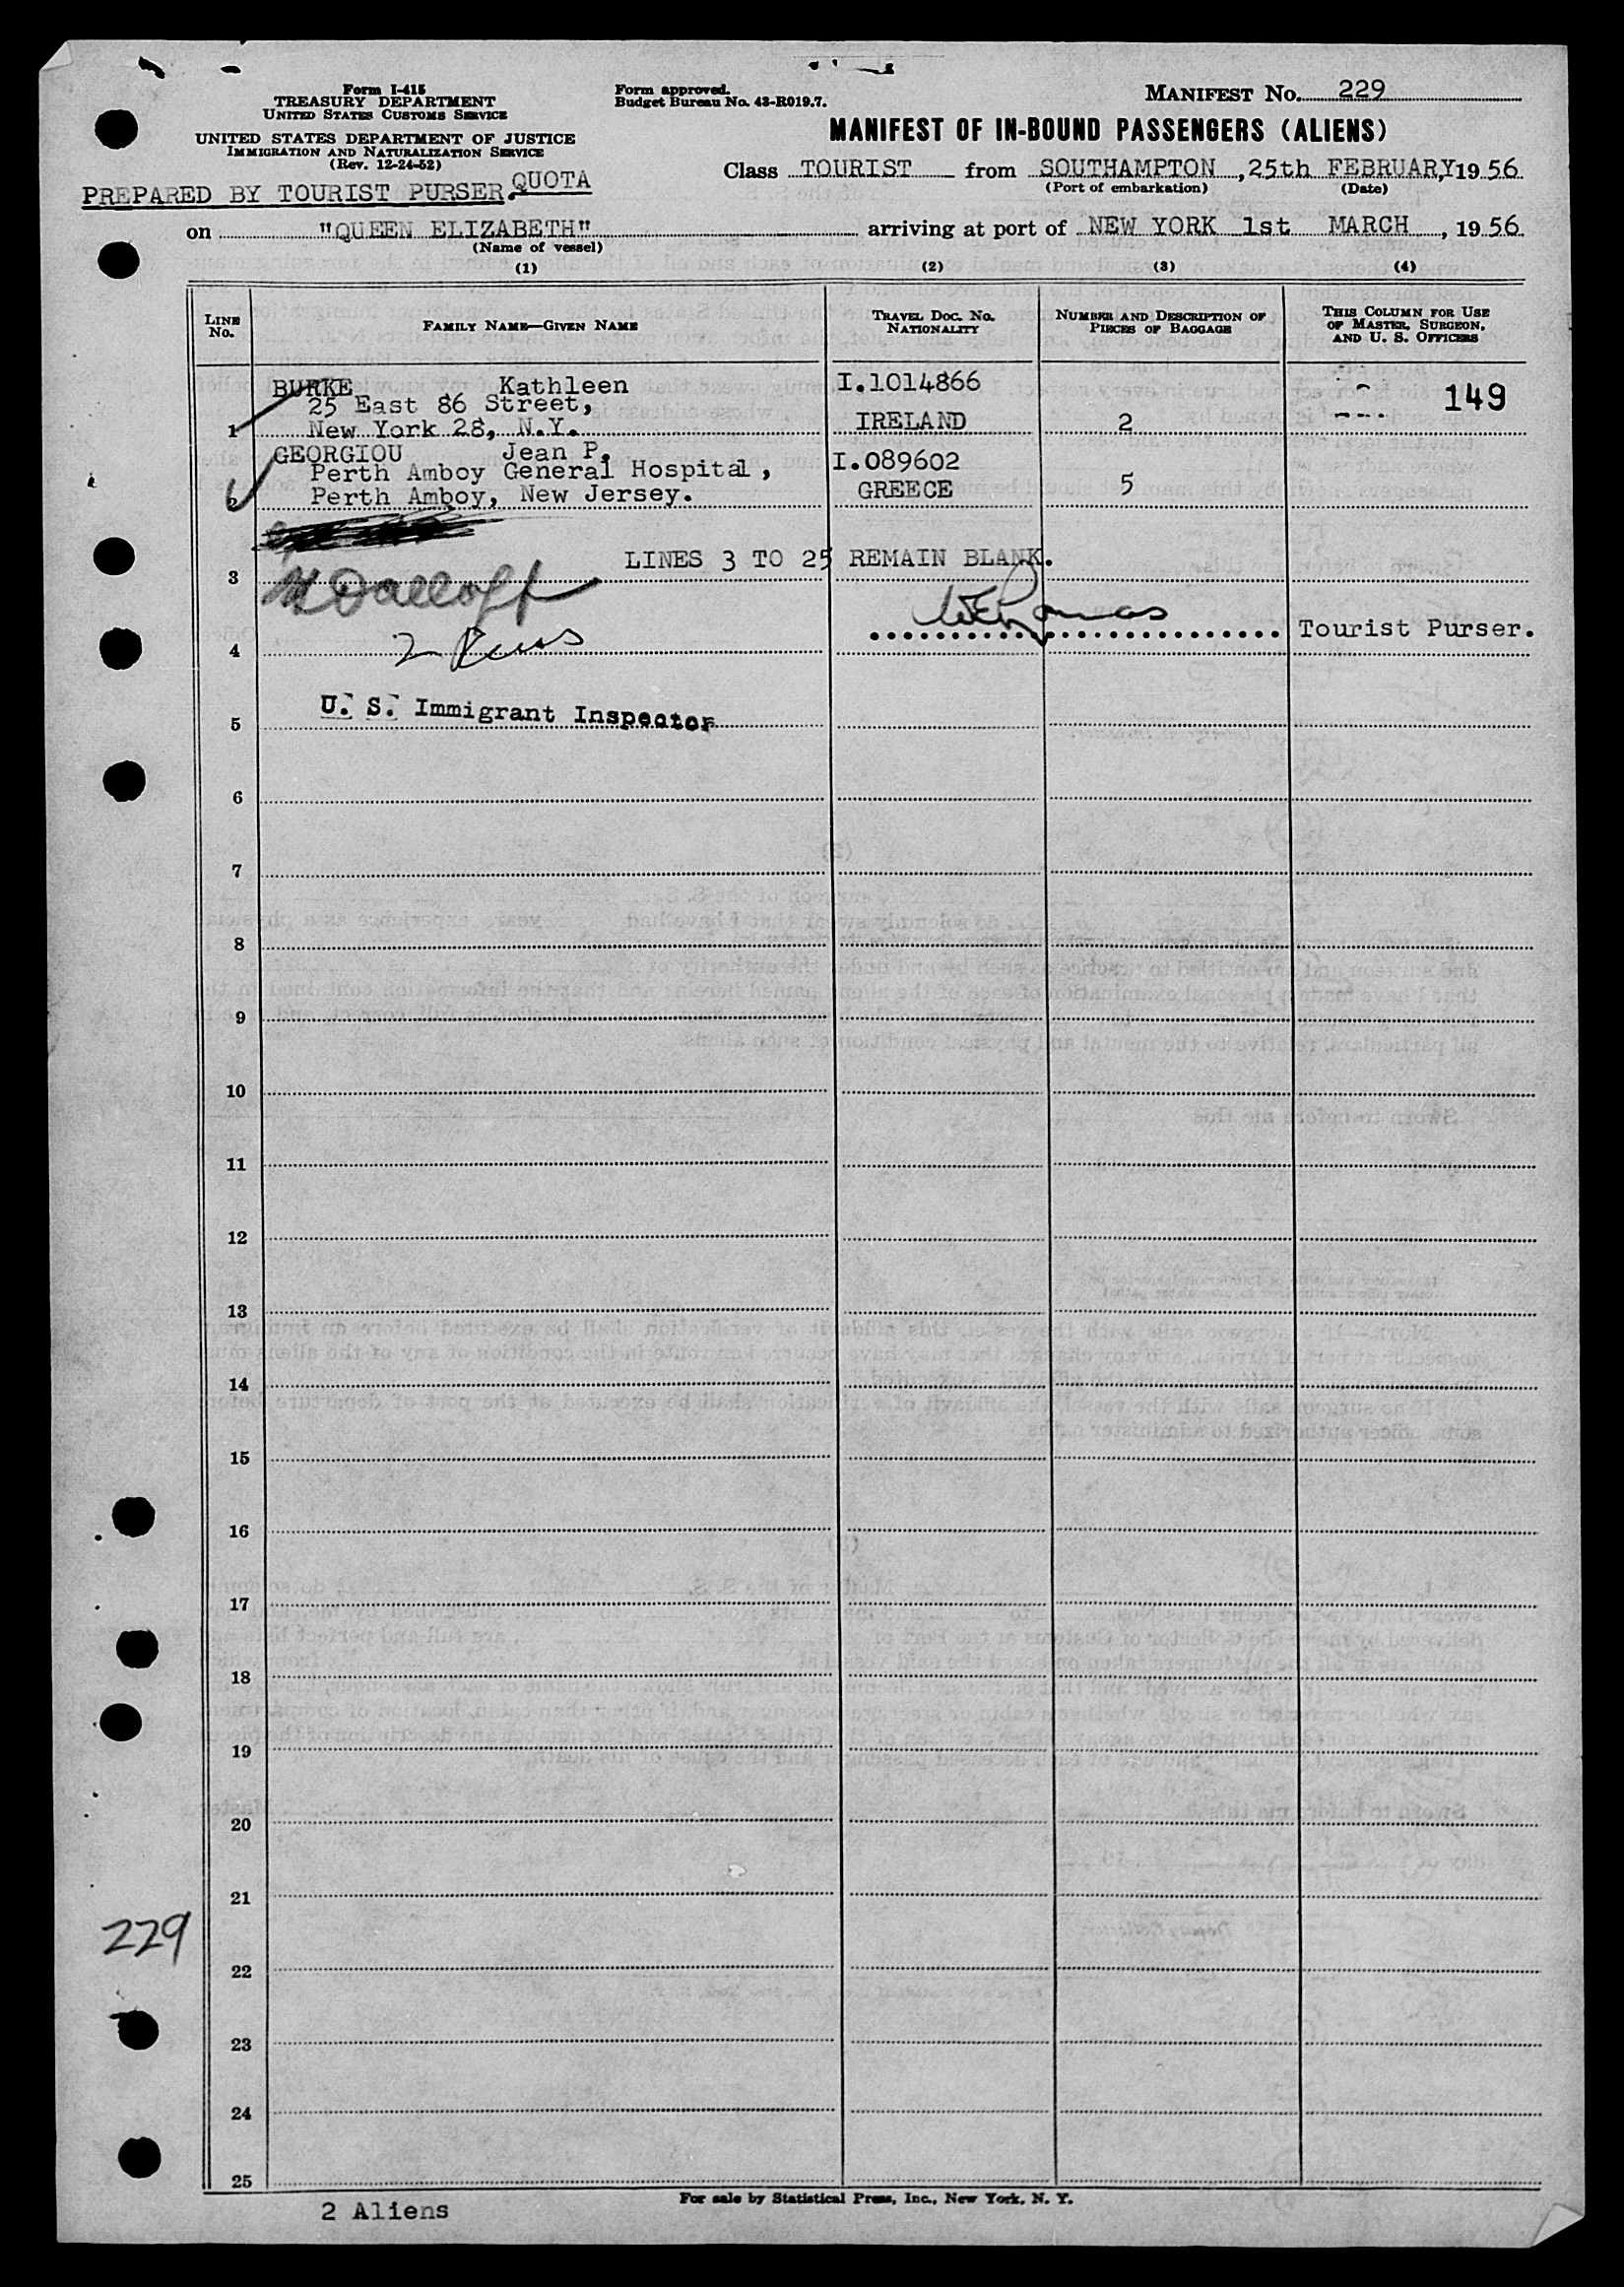 Form I-415
TREASURY DEPARTMENT
UNITED STATES CUSTOMS SERVICE
UNITED STATES DEPARTMENT OF JUSTICE
IMMIGRATION AND NATURALIZATION SERVICE
(Rev. 12-24-52)
PREPARED BY TOURIST PURSER. QUOTA
Form approved.
Budget Bureau No. 43-R019.7.
MANIFEST NO. 229
MANIFEST OF IN-BOUND PASSENGERS (ALIENS)
Class TOURIST from SOUTHAMPTON, 25th FEBRUARY, 19 56
(Port of embarkation) (Date)
on "QUEEN ELIZABETH" arriving at port of NEW YORK 1st MARCH, 19 56
(Name of vessel)
(1) (2) (3) (4)
LINE No. FAMILY NAME—GIVEN NAME TRAVEL DOC. NO. NATIONALITY NUMBER AND DESCRIPTION OF PIECES OF BAGGAGE THIS COLUMN FOR USE OF MASTER, SURGEON, AND U. S. OFFICERS
BURKE Kathleen I.1014866 149
25 East 86 Street,
1 New York 28, N.Y. IRELAND 2
GEORGIOU Jean P. I.089602
Perth Amboy General Hospital,
2 Perth Amboy, New Jersey. GREECE 5
LINES 3 TO 25 REMAIN BLANK.
3
Tourist Purser.
4 2
5 U. S. Immigrant Inspector
6
7
8
9
10
11
12
13
14
15
16
17
18
19
20
21
229
22
23
24
25
2 Aliens
For sale by Statistical Press, Inc., New York, N. Y.